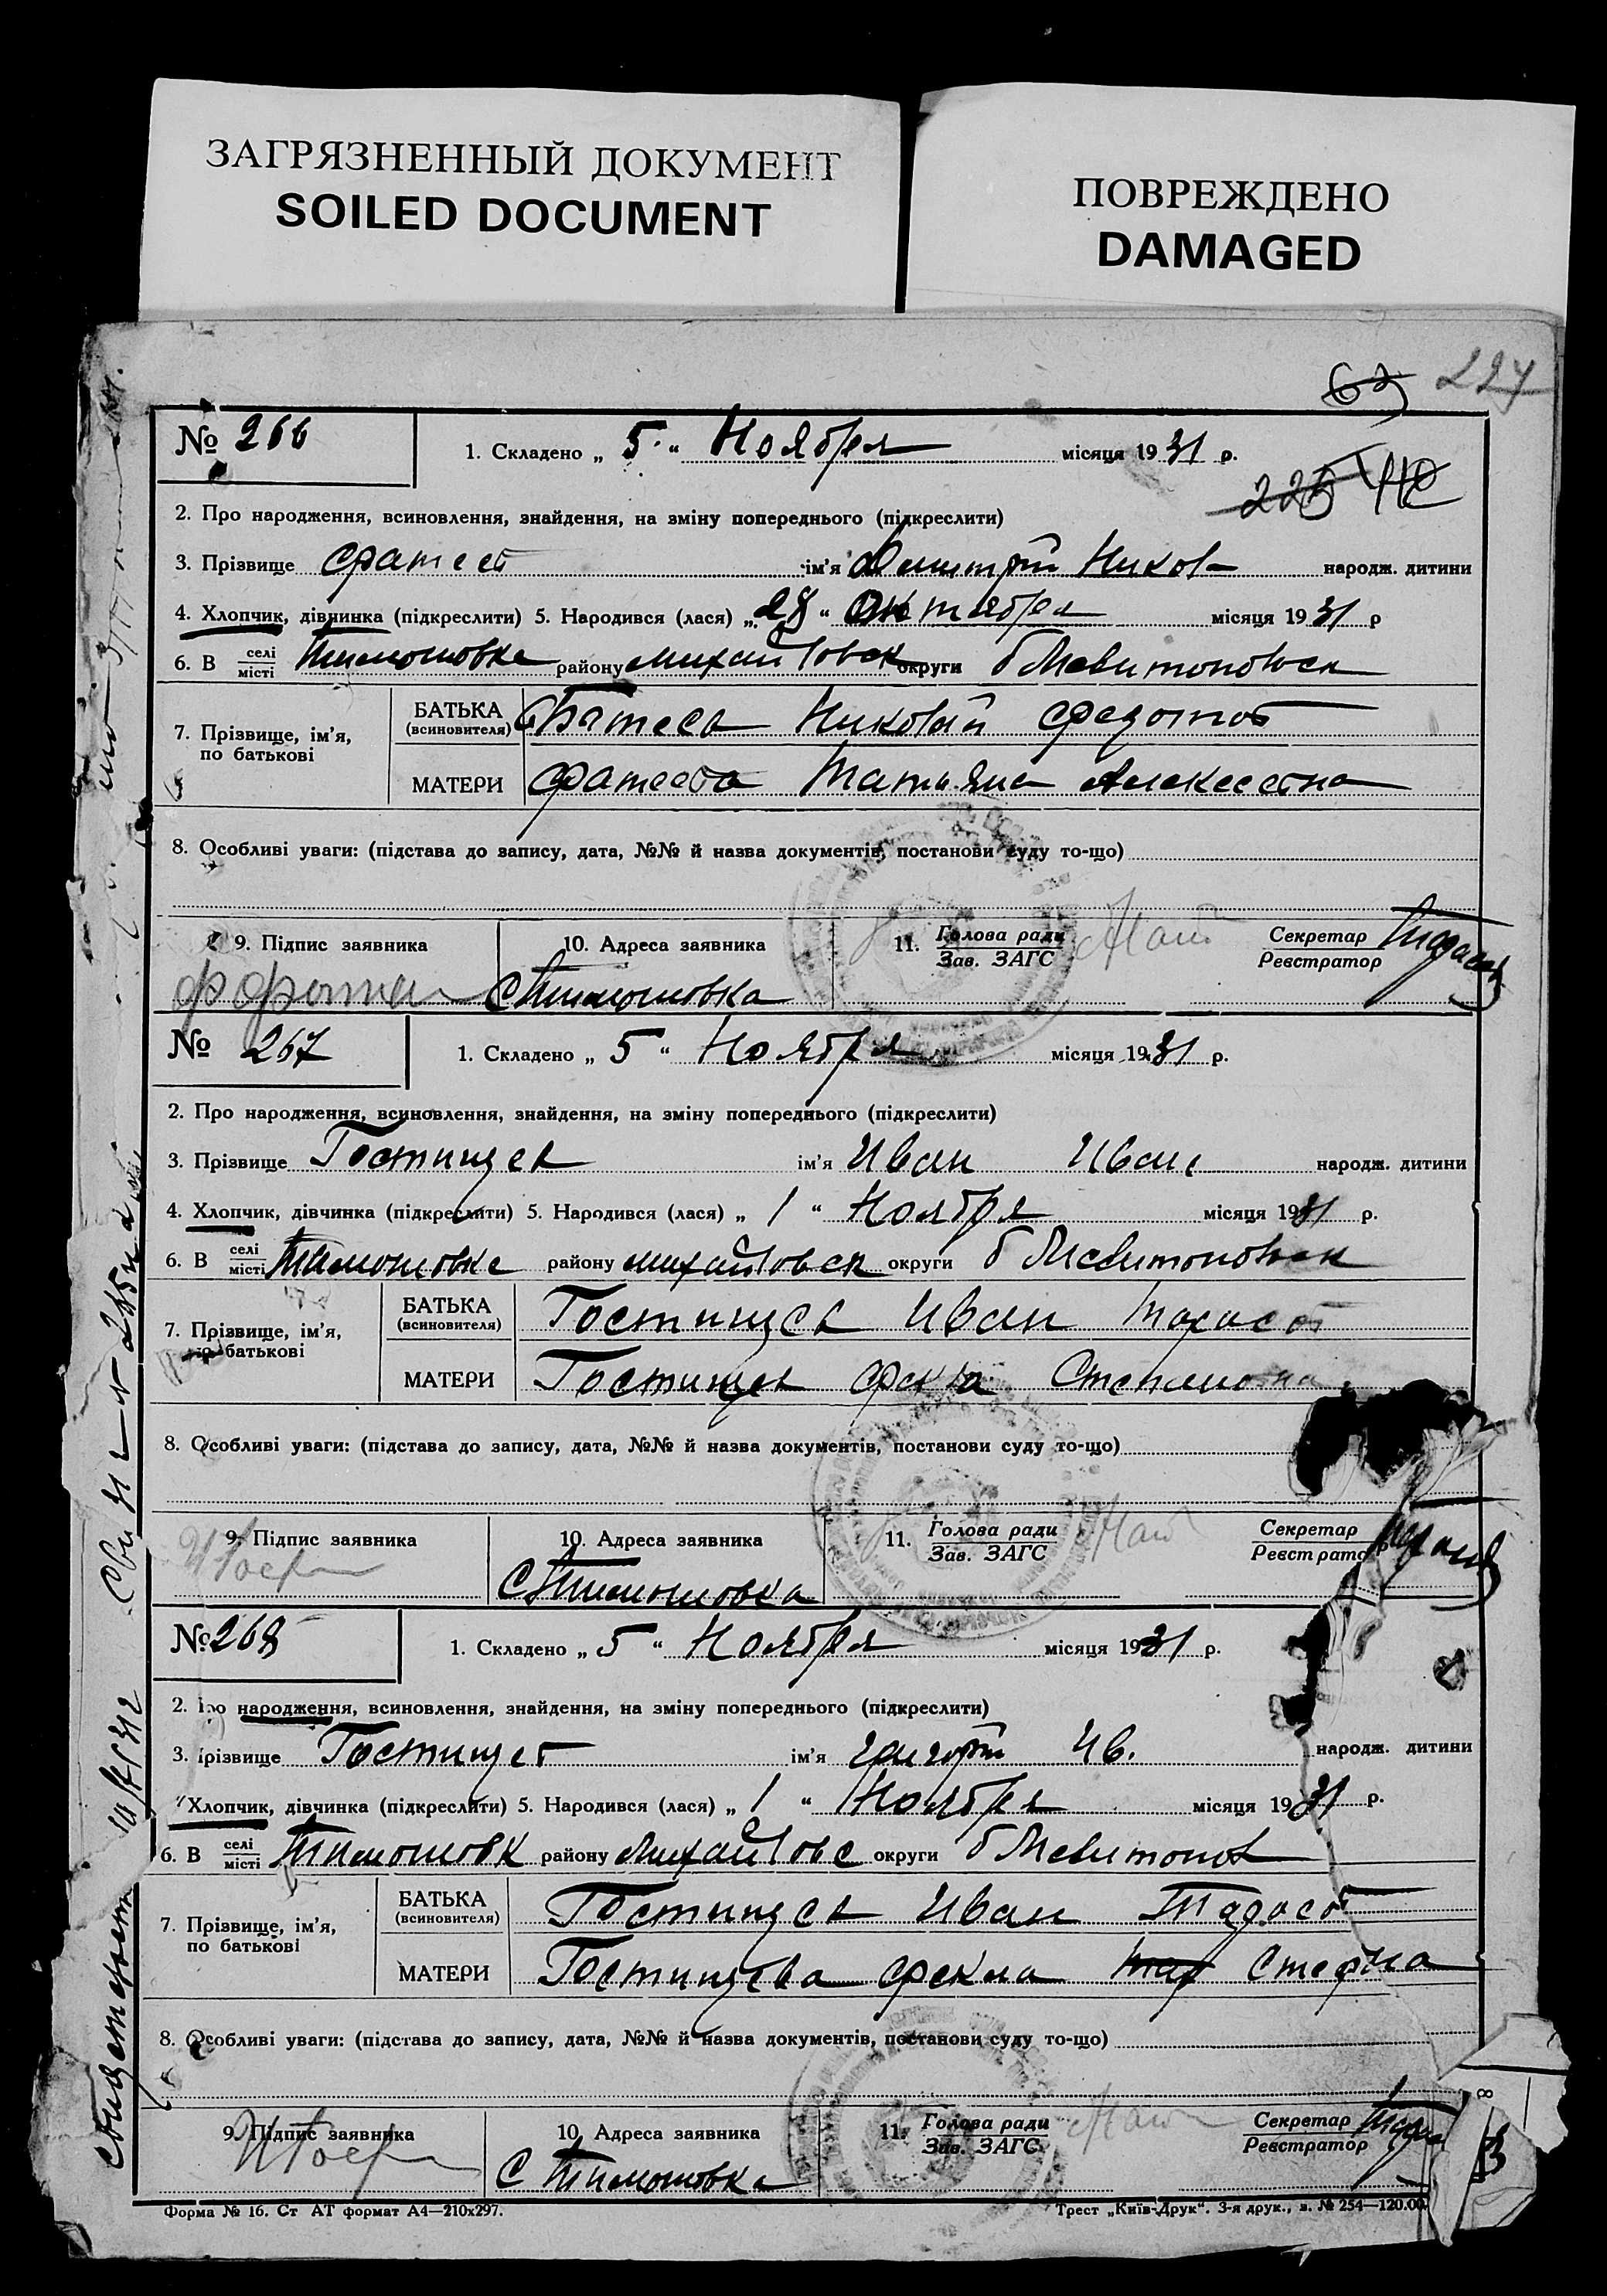 ЗАГРЯЗНЕННЫЙ ДОКУМЕНТ
SOILED DOCUMENT
ПОВРЕЖДЕНО
DAMAGED
63 224
№ 266 1. Складено „ 5 “ Ноября місяця 1931 р.
225
2. Про народження, всиновлення, знайдення, на зміну попереднього (підкреслити)
3. Прізвище Фатеев ім'я Дмитрий Никол народж. дитини
4. Хлопчик, дівчинка (підкреслити) 5. Народився (лася) „ 28 “ Октября місяця 1931 р
6. В селі місті Тимошовке району Михайловск округи б Мелитопольск
7. Прізвище, ім'я, по батькові
БАТЬКА (всиновителя) Фатеев Николай Федотов
МАТЕРИ Фатеева Татьяна Алексеевна
8. Особливі уваги: (підстава до запису, дата, №№ й назва документів, постанови суду то-що)
9. Підпис заявника 10. Адреса заявника 11. Голова ради Зав. ЗАГС Секретар Реєстратор
С Тимошовка
№ 267 1. Складено „ 5 “ Ноября місяця 1931 р.
2. Про народження, всиновлення, знайдення, на зміну попереднього (підкреслити)
3. Прізвище Гостищев ім'я Иван Иван народж. дитини
4. Хлопчик, дівчинка (підкреслити) 5. Народився (лася) „ 1 “ Ноября місяця 1931 р.
6. В селі місті Тимошовке району Михайловск округи б Мелитопольск
7. Прізвище, ім'я, по батькові
БАТЬКА (всиновителя) Гостищев Иван
МАТЕРИ Гостищев Фекла Степановна
8. Особливі уваги: (підстава до запису, дата, №№ й назва документів, постанови суду то-що)
9. Підпис заявника 10. Адреса заявника 11. Голова ради Зав. ЗАГС Секретар Реєстратор
С Тимошовка
№ 268 1. Складено „ 5 “ Ноября місяця 1931 р.
2. Про народження, всиновлення, знайдення, на зміну попереднього (підкреслити)
3. Прізвище Гостищев ім'я Григорий Ив. народж. дитини
Хлопчик, дівчинка (підкреслити) 5. Народився (лася) „ 1 “ Ноября місяця 1931 р.
6. В селі місті Тимошовк району Михайловс округи б Мелитопол
7. Прізвище, ім'я, по батькові
БАТЬКА (всиновителя) Гостищев Иван
МАТЕРИ Гостищева Фекла
8. Особливі уваги: (підстава до запису, дата, №№ й назва документів, постанови суду то-що)
9. Підпис заявника 10. Адреса заявника 11. Голова ради Зав. ЗАГС Секретар Реєстратор
С Тимошовка
Форма № 16. Ст АТ формат А4—210x297. Трест „Київ-Друк“. 3-я друк., з. № 254—120.00